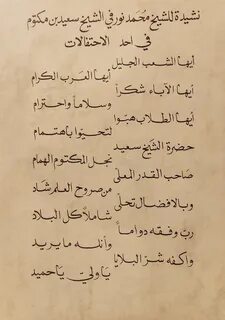 نشيدة للشيخ محمد نور في الشيخ سعيد بن مكتوم
في احد الاحتفالات
أيها الشعب الجليل أيها العرب الكرام
أيها الآباء شكراً وسلاماً واحترام
أيها الطلاب هبوا لتحيوا باهتمام
حضرة الشيخ سعيد نجل المكتوم الهمام
صاحب القدر المعلى من صروح العلم شاد
وبالافضال تحلى شاملاً كل البلاد
رب وفقه دواماً وأنله ما يريد
واكفه شر البلايا يا ولي يا حميد